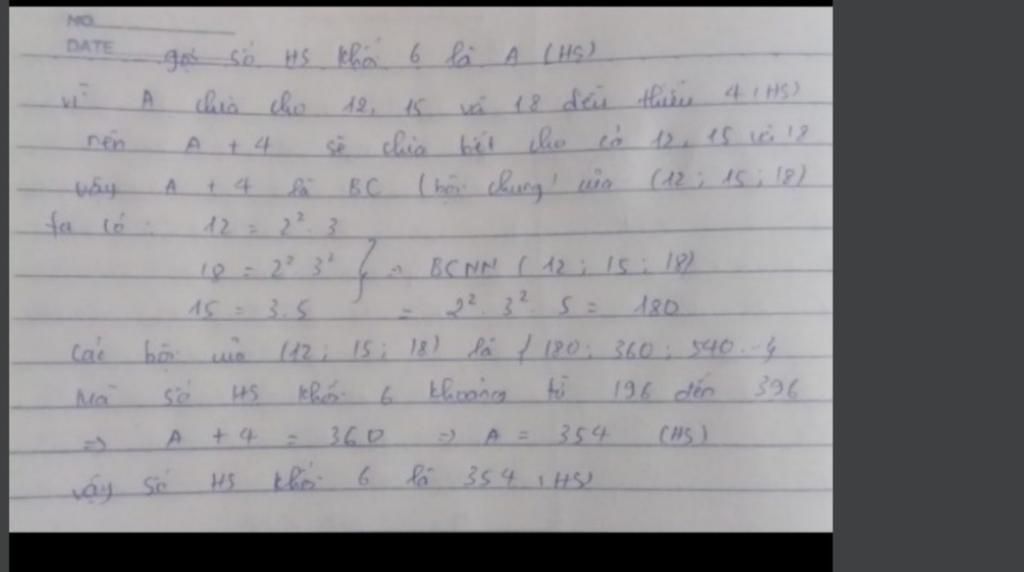 NO
DATE
gọi số HS khối 6 là A (HS)
vì A chia cho 12, 15 và 18 đều thiếu 4 (HS)
nên A + 4 sẽ chia hết cho cả 12, 15 và 18
vậy A + 4 là BC (bội chung) của (12 ; 15 ; 18)
ta có : 12 = 2² . 3
18 = 2² . 3² } => BCNN ( 12 ; 15 ; 18)
15 = 3.5 = 2² . 3² . 5 = 180
Các bội của (12 ; 15 ; 18) là { 180 ; 360 ; 540...}
Mà số HS khối 6 khoảng từ 196 đến 396
=> A + 4 = 360 => A = 354 (HS)
vậy số HS khối 6 là 354 (HS)